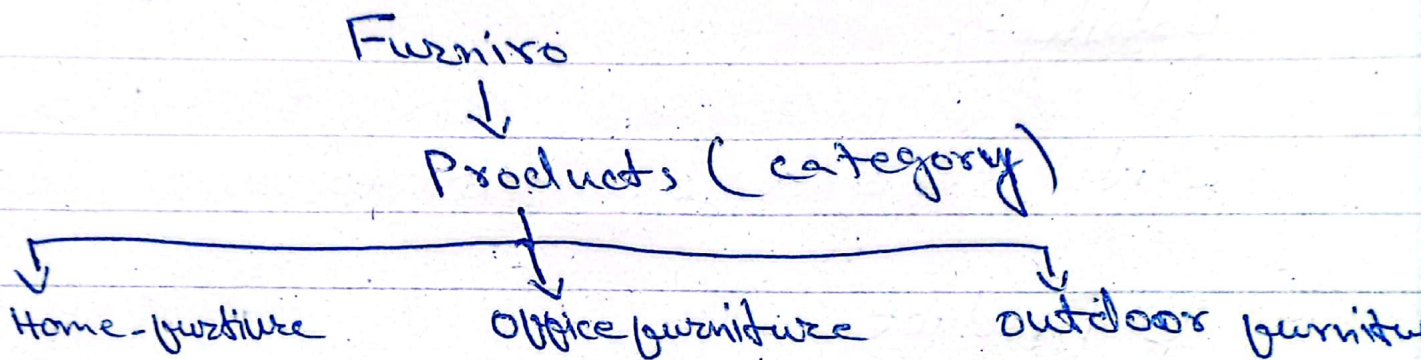 Furniro
Products (category)
Home-furtiure Office furniture outdoor furnitu